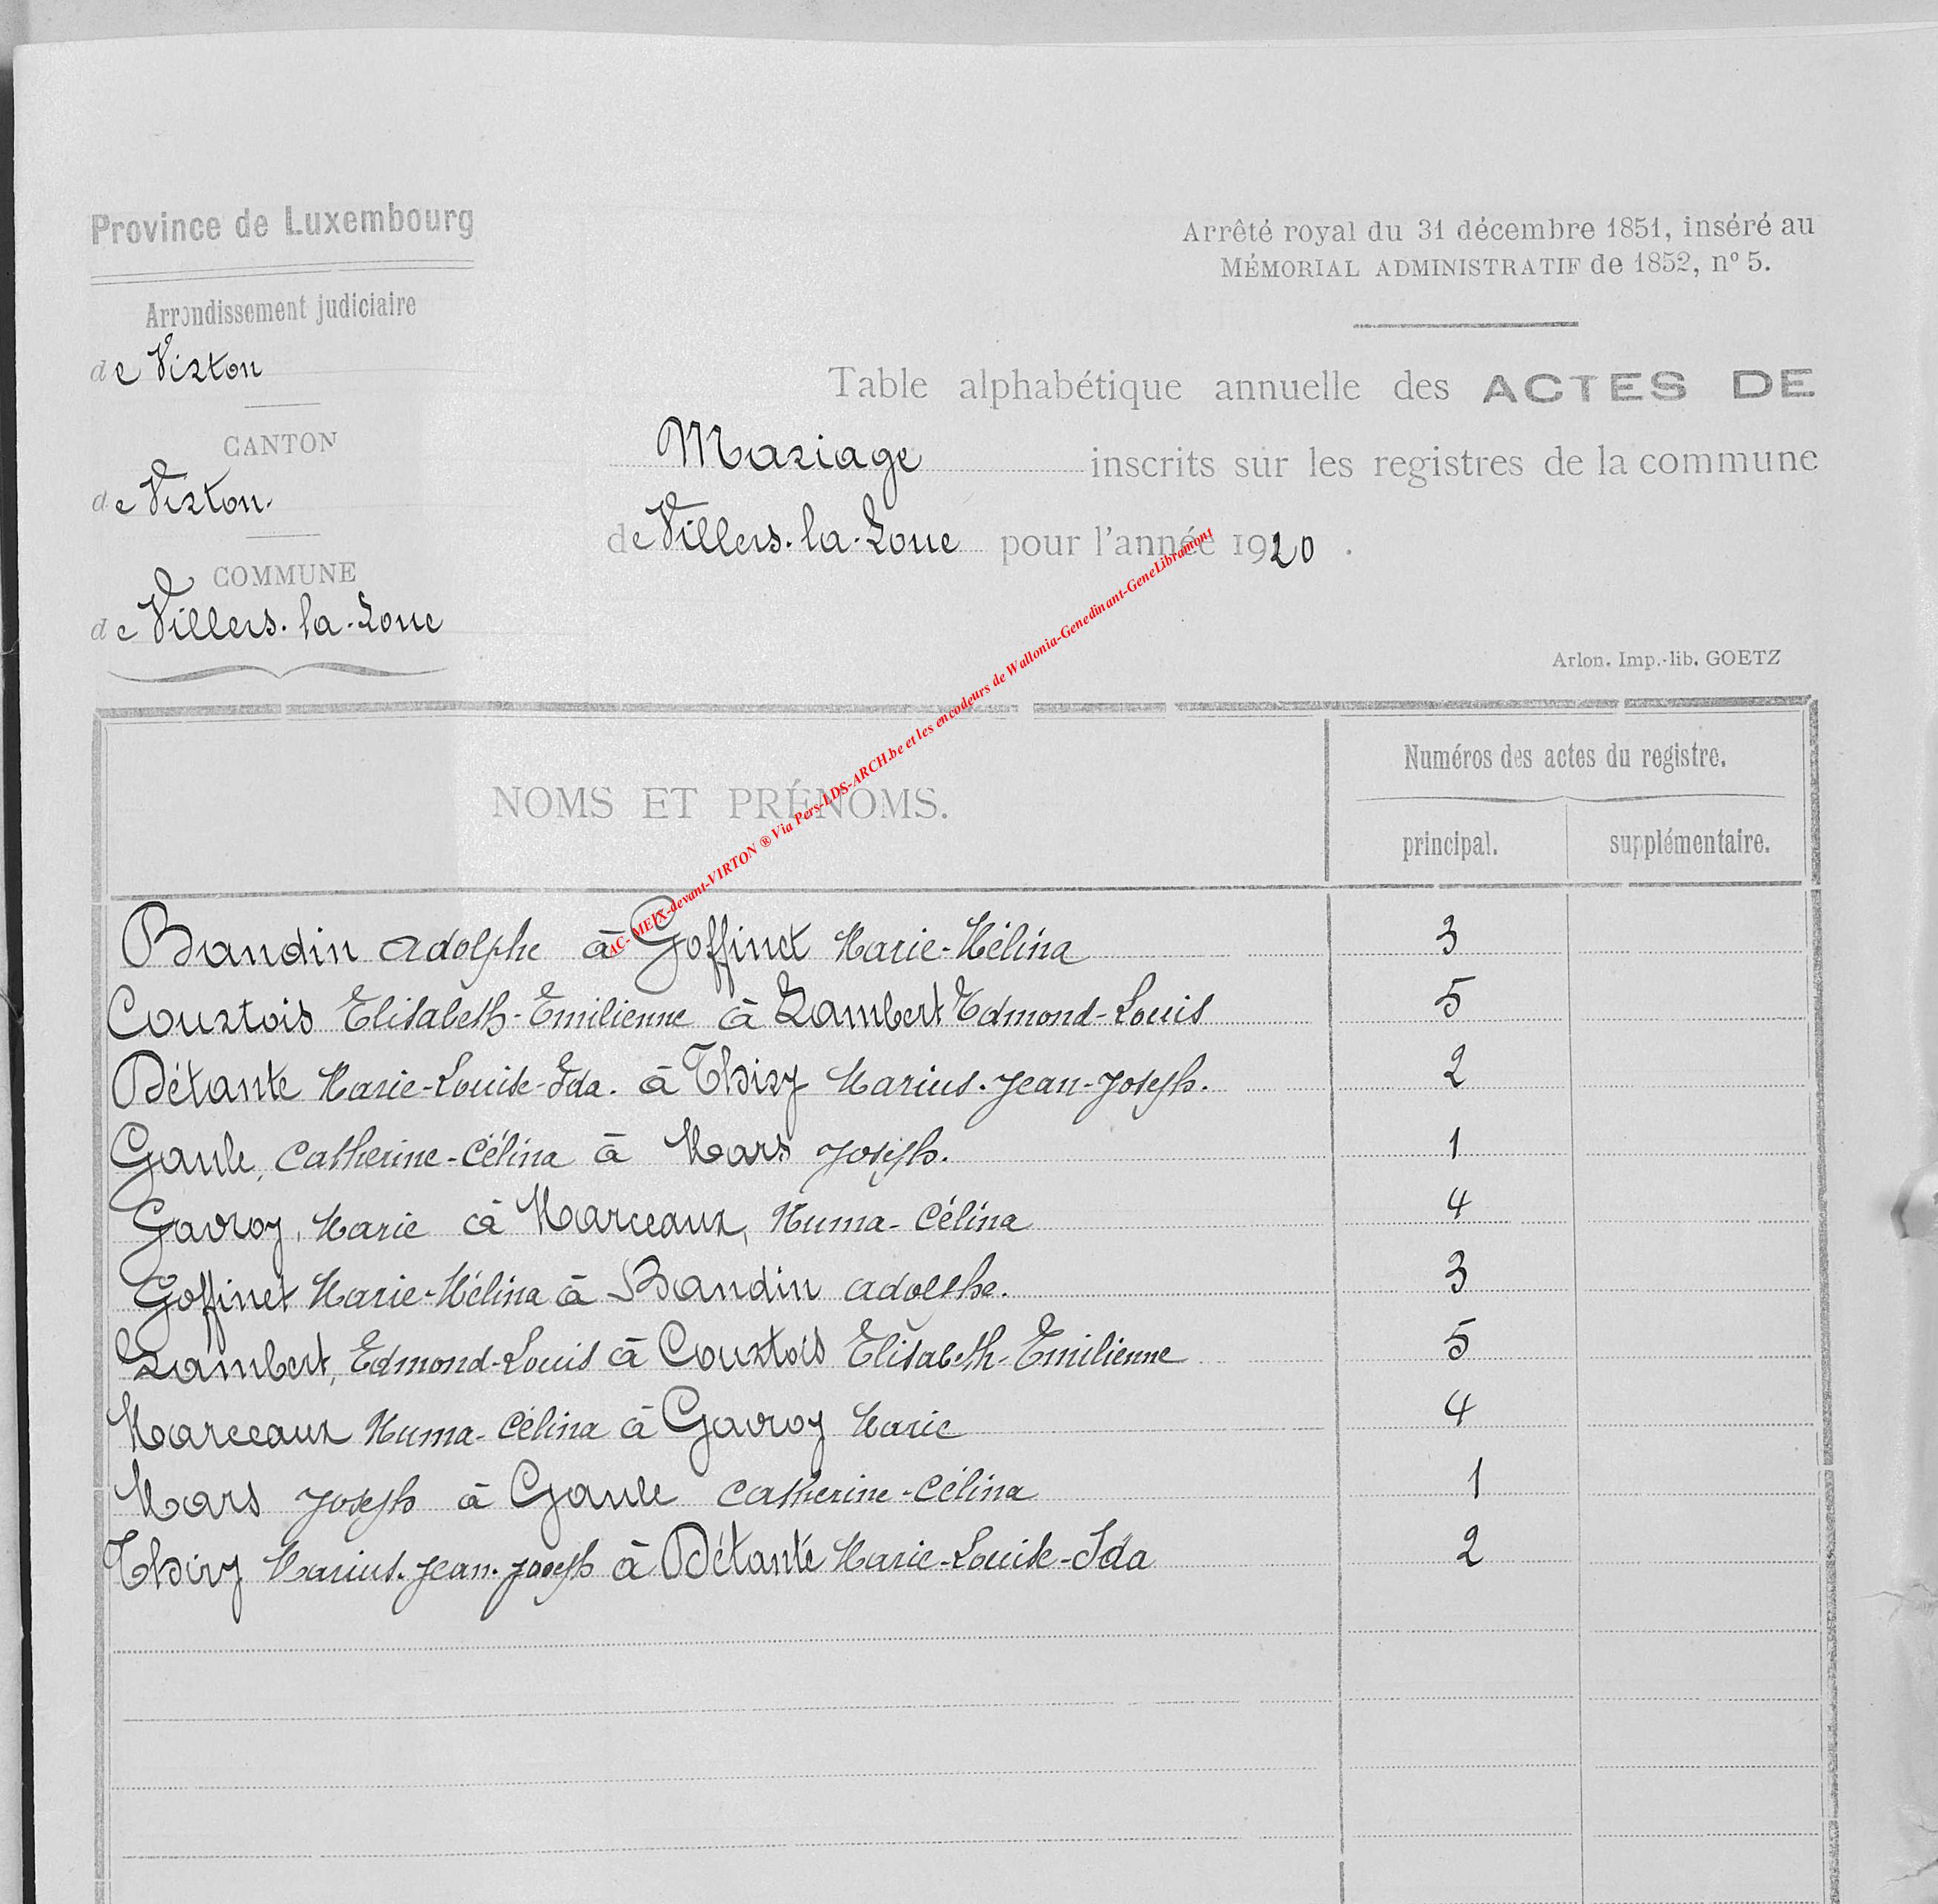 Province de Luxembourg
Arrondissement judiciaire
de Virton
CANTON
de Virton.
COMMUNE
de Villers-la-Loue
Arrêté royal du 31 décembre 1851, inséré au
MÉMORIAL ADMINISTRATIF de 1852, nº 5.
Table alphabétique annuelle des ACTES DE
Mariage inscrits sur les registres de la commune
de Villers-la-Loue pour l'année 1920.
Arlon. Imp.-lib. GOETZ
AC-MEIX-devant-VIRTON ® Via Pers-LDS-ARCH.be et les encodeurs de Wallonia-Genedinant-GeneLibramont
NOMS ET PRÉNOMS.
Numéros des actes du registre.
principal. supplémentaire.
Baudin Adolphe à Goffinet Marie-Mélina 3
Courtois Elisabeth-Emilienne à Lambert Edmond-Louis 5
Détante Marie-Louise-Ida. à Thiry Marius-Jean-Joseph. 2
Gaule, Catherine-Célina à Mars Joseph. 1
Gavroy, Marie à Marceaux, Numa-Célina 4
Goffinet Marie-Mélina à Baudin Adolphe. 3
Lambert, Edmond-Louis à Courtois Elisabeth-Emilienne 5
Marceaux Numa-Célina à Gavroy Marie 4
Mars Joseph à Gaule Catherine-Célina 1
Thiry Marius-Jean-Joseph à Détante Marie-Louise-Ida 2